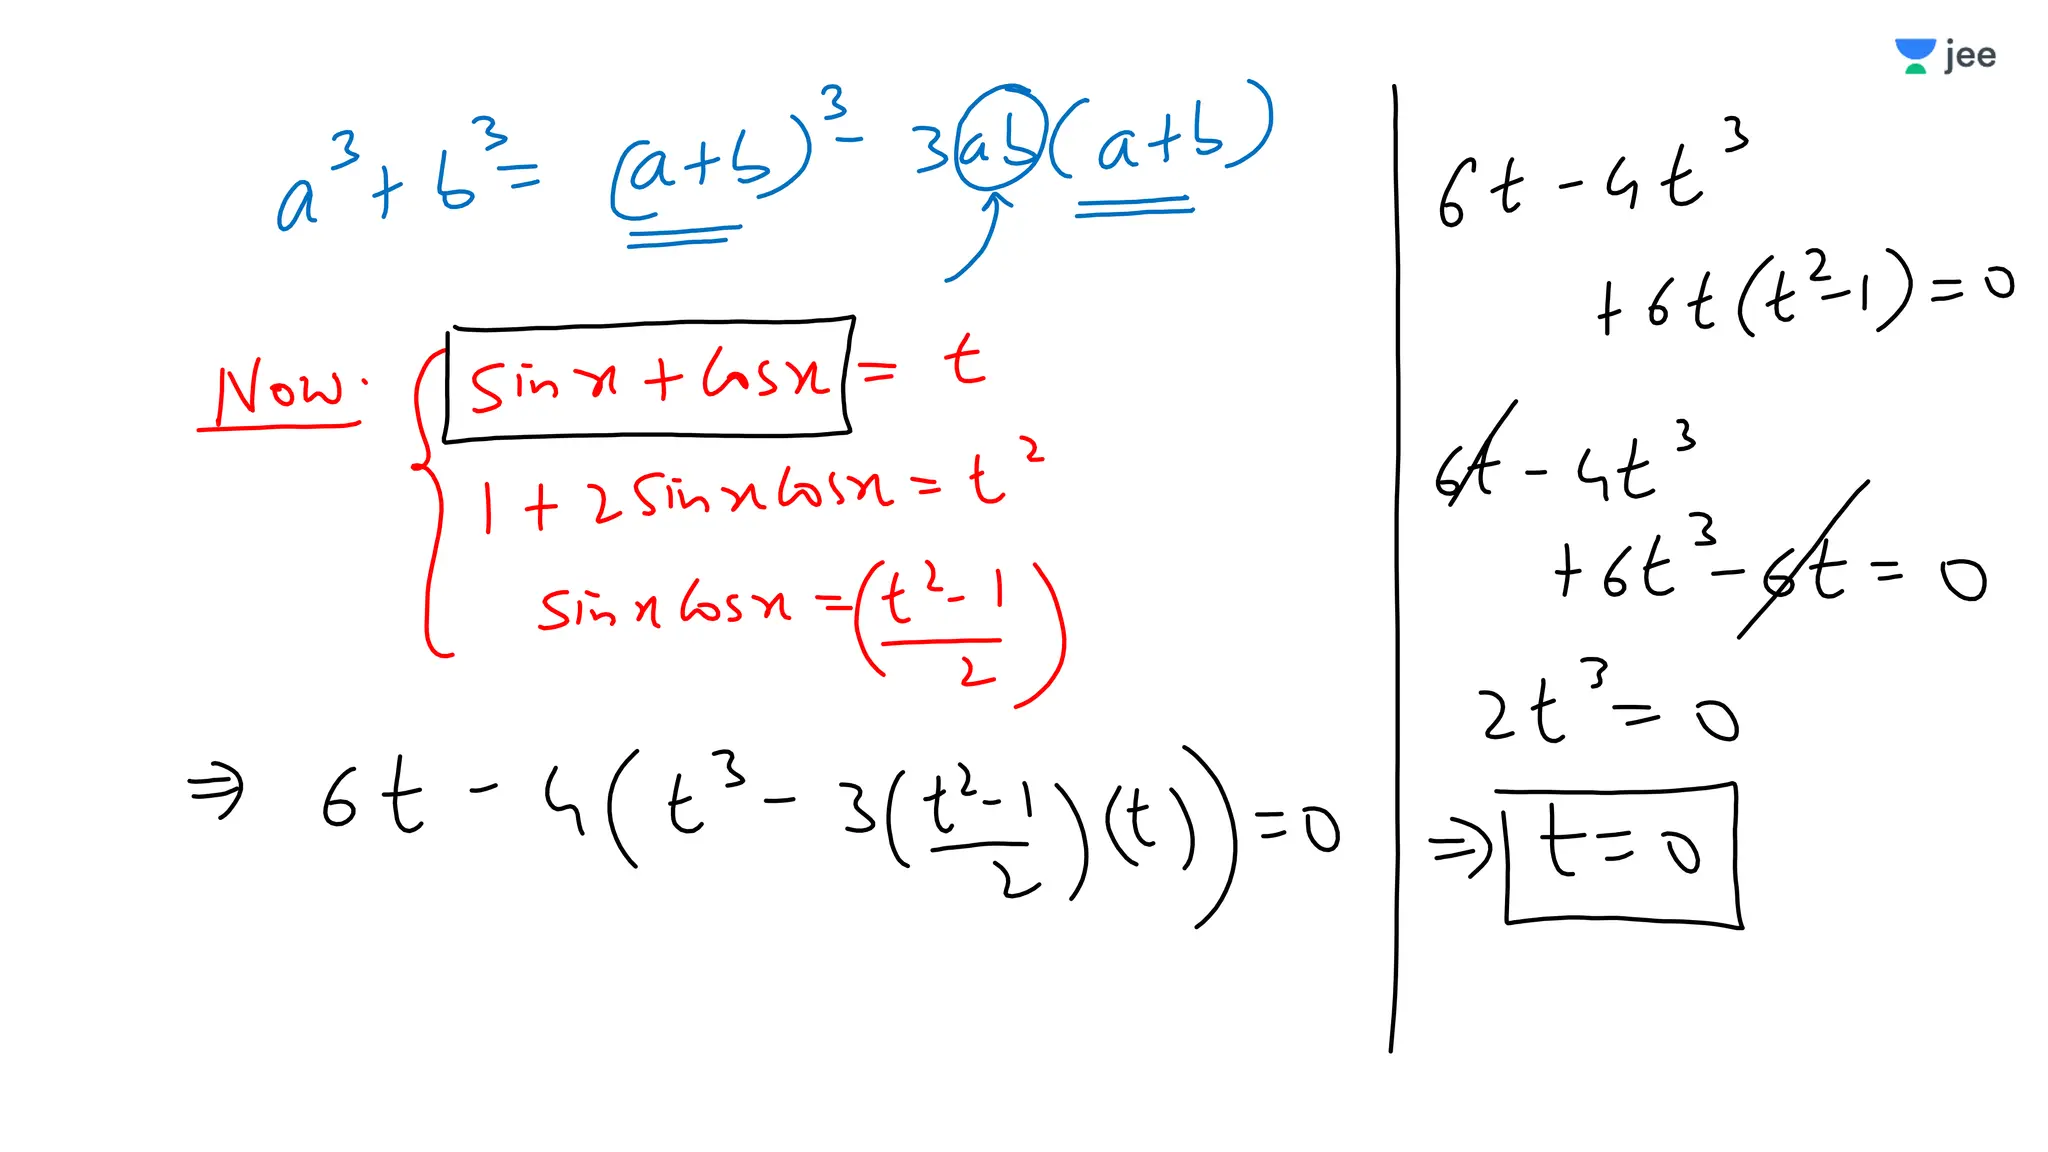 jee
a³ + b³ = (a+b)³ - 3ab(a+b)
Now. sinx + cosx = t
1 + 2 sinx cosx = t²
sinx cosx = (t²-1/2)
⇒ 6t - 4(t³ - 3(t²-1/2)(t)) = 0
6t - 4t³
+ 6t(t²-1) = 0
6t - 4t³
+ 6t³ - 6t = 0
2t³ = 0
⇒ t = 0